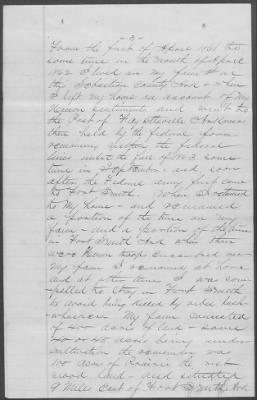 - 3 -
From the first of April 1861 to
some time in the month of April
1862 I lived on my farm
Sebastian County Ark - when
I left my home on account of my
Union sentiments and went to
the Post of Fayetteville Arkansas
then held by the federal
remaining within the federal
lines until the fall of 1863 some
time in September - and soon
after the Federal army first come
to Fort Smith when I returned
to my home - and remained
a portion of the time on my
farm - and a portion of the time
in Fort Smith Ark when there
were Union troops encamped near
my farm I remained at home
and at other times I was com-
pelled to stay in Fort Smith
to avoid being killed by rebel bush-
whackers. My farm consisted
of 400 acres of land - some
40 or 45 acres being under
cultivation the remainder was
100 acres of Prairie the rest
wood land - and situated
9 Mile East of Fort Smith Ark